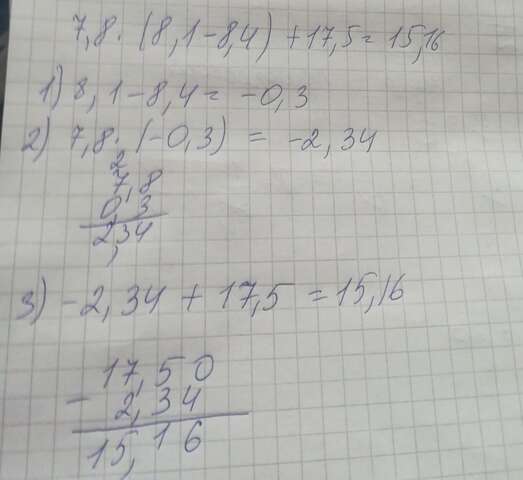 7,8 · (8,1-8,4) +17,5 = 15,16
1) 8,1-8,4 = -0,3
2) 7,8 · (-0,3) = -2,34
2
7,8
0,3
2,34
3) -2,34 + 17,5 = 15,16
17,50
- 2,34
15,16